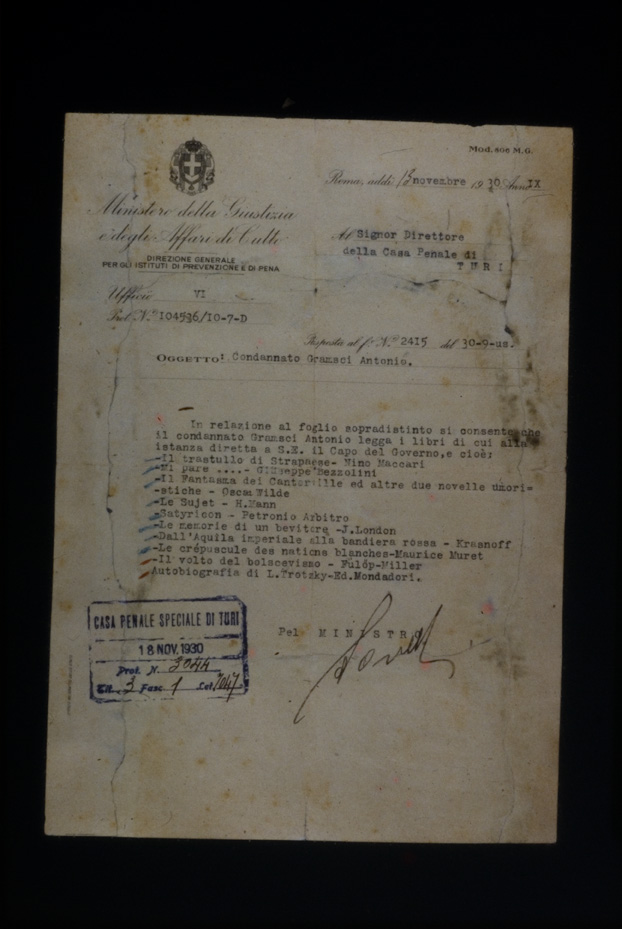 Mod. 808 M.G.
Roma, addì 13 novembre 1930 Anno IX
Ministero della Giustizia
e degli Affari di Culto
DIREZIONE GENERALE
PER GLI ISTITUTI DI PREVENZIONE E DI PENA
Al Signor Direttore
della Casa Penale di
TURI
Ufficio VI
Prot. N.° 104536/10-7-D
Risposta al f.° N.° 2415 del 30-9-us.
OGGETTO: Condannato Gramsci Antonio.
In relazione al foglio sopradistinto si consente che
il condannato Gramsci Antonio legga i libri di cui alla
istanza diretta a S.E. il Capo del Governo, e cioè;
-Il trastullo di Strapaese- Nino Maccari
-Mi pare ....- Giuseppe Bezzolini
-Il Fantasma dei Canterville ed altre due novelle umori=
-stiche - Oscar Wilde
-Le Sujet - H.Mann
-Satyricon - Petronio Arbitro
-Le memorie di un bevitore -J.London
-Dall'Aquila imperiale alla bandiera rossa - Krasnoff
-Le crépuscule des nations blanches-Maurice Muret
-Il volto del bolscevismo - Fulöp-Miller
Autobiografia di L.Trotzky-Ed.Mondadori.
Pel MINISTRO
CASA PENALE SPECIALE DI TURI
18 NOV. 1930
Prot. N. 3044
Tit. 3 Fasc 1 Let. 7047